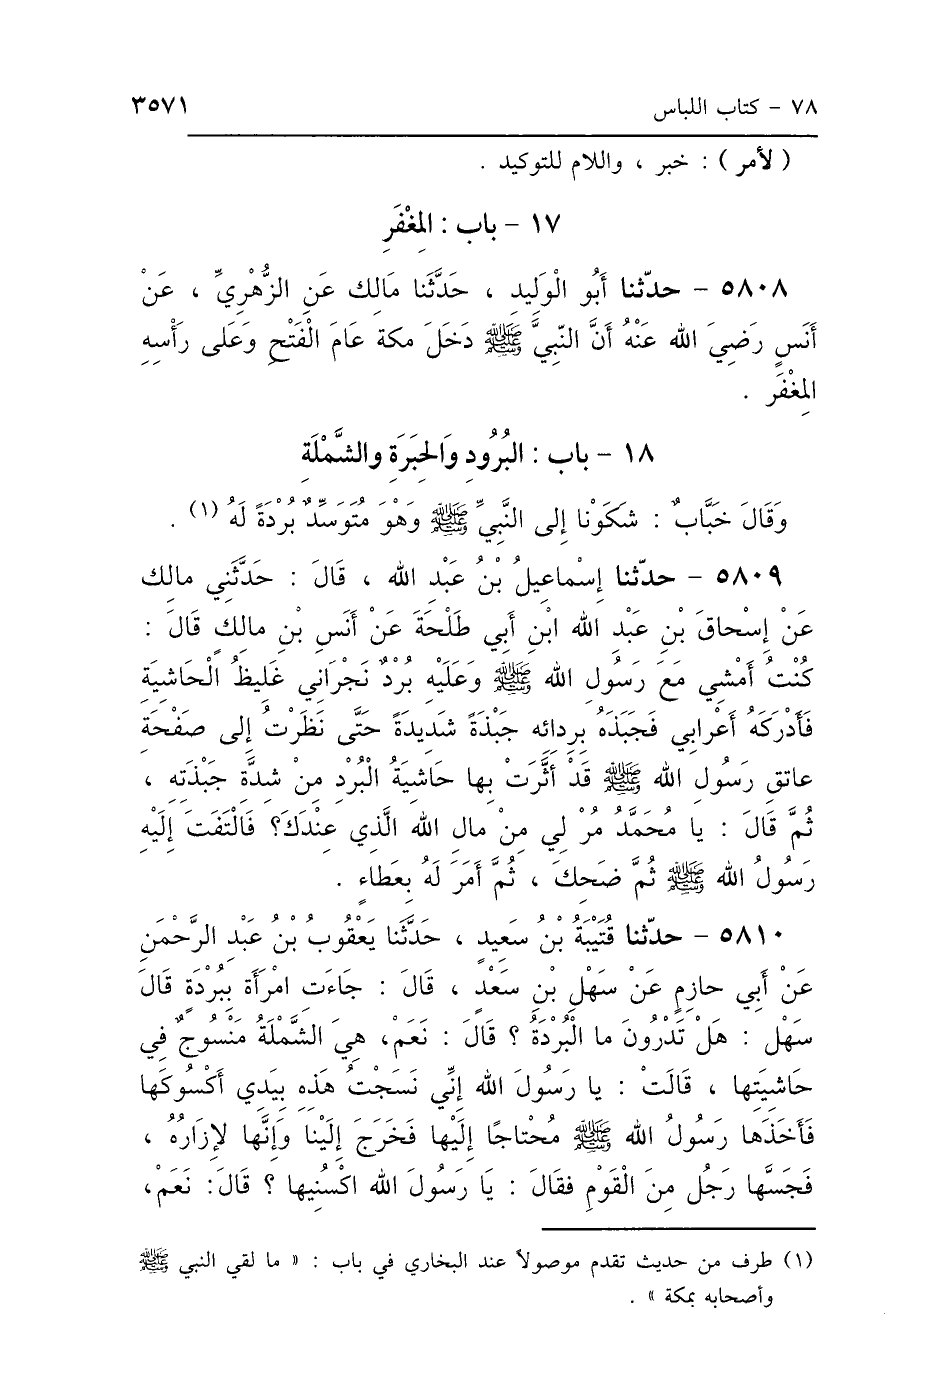 ٧٨ – كتاب اللباس ٣٥٧١
( لأمر ) : خبر ، واللام للتوكيد .
١٧ – باب : المِغْفَرِ
٥٨٠٨ – حدّثنا أَبُو الْوَلِيدِ ، حَدَّثَنا مَالك عَنِ الزُّهْرِيِّ ، عَنْ
أَنَسٍ رَضِيَ الله عَنْهُ أَنَّ النّبيَّ ﷺ دَخَلَ مكة عَامَ الْفَتْحِ وَعَلى رَأْسِهِ
المِغْفَر .
١٨ – باب : البُرُودِ وَالحِبَرَةِ والشَّمْلَةِ
وَقَالَ خَبَّابٌ : شكَوْنا إلى النَّبيِّ ﷺ وَهْوَ مُتَوَسِّدٌ بُرْدَةً لَهُ (١) .
٥٨٠٩ – حدّثنا إِسْماعيلُ بْنُ عَبْدِ الله ، قَالَ : حَدَّثَنِي مالك
عَنْ إِسْحاقَ بْنِ عَبْدِ الله ابْنِ أَبي طَلْحَةَ عَنْ أَنَسِ بْنِ مالكٍ قَالَ :
كُنْتُ أَمْشي مَعَ رَسُولِ الله ﷺ وَعَلَيْهِ بُرْدٌ نَجْرَاني غَليظُ الْحَاشيَة
فَأَدْرَكَهُ أَعْرابي فَجَبَذَهُ بِردائه جَبْذَةً شَديدَةً حَتَّى نَظَرْتُ إلى صَفْحَة
عاتق رَسُولِ الله ﷺ قَدْ أَثَّرَتْ بِها حَاشيَةُ الْبُرْدِ مِنْ شدَّة جَبْذَته ،
ثُمَّ قَالَ : يا مُحَمَّدُ مُرْ لي مِنْ مالِ الله الَّذي عِنْدَكَ؟ فَالْتَفَتَ إِلَيْه
رَسُولُ الله ﷺ ثُمَّ ضَحِكَ ، ثُمَّ أَمَرَ لَهُ بِعَطَاءٍ .
٥٨١٠ – حدّثنا قُتَيْبَةُ بْنُ سَعيدٍ ، حَدَّثَنا يَعْقُوبُ بْنُ عَبْدِ الرَّحْمَنِ
عَنْ أَبي حازِمٍ عَنْ سَهْلِ بْنِ سَعْدٍ ، قَالَ : جَاءَت امْرَأَة بِبُرْدَةٍ قَالَ
سَهْل : هَلْ تَدْرُونَ ما الْبُرْدَةُ ؟ قَالَ : نَعَمْ، هِيَ الشَّمْلَةُ مَنْسُوجٌ فِي
حَاشيَتِها ، قَالَتْ : يا رَسُولَ الله إِنِّي نَسَجْتُ هَذِهِ بِيَدي أَكْسُوكَها
فَأَخَذَها رَسُولُ الله ﷺ مُحْتاجًا إِلَيْها فَخَرَجَ إِلَيْنا وَإِنَّها لإزَارُهُ ،
فَجَسَّها رَجُل مِنَ الْقَوْمِ فقالَ : يَا رَسُولَ الله اكْسُنِيها ؟ قَالَ: نَعَمْ،
(١) طرف من حديث تقدم موصولاً عند البخاري في باب : « ما لقي النبي ﷺ
وأصحابه بمكة » .